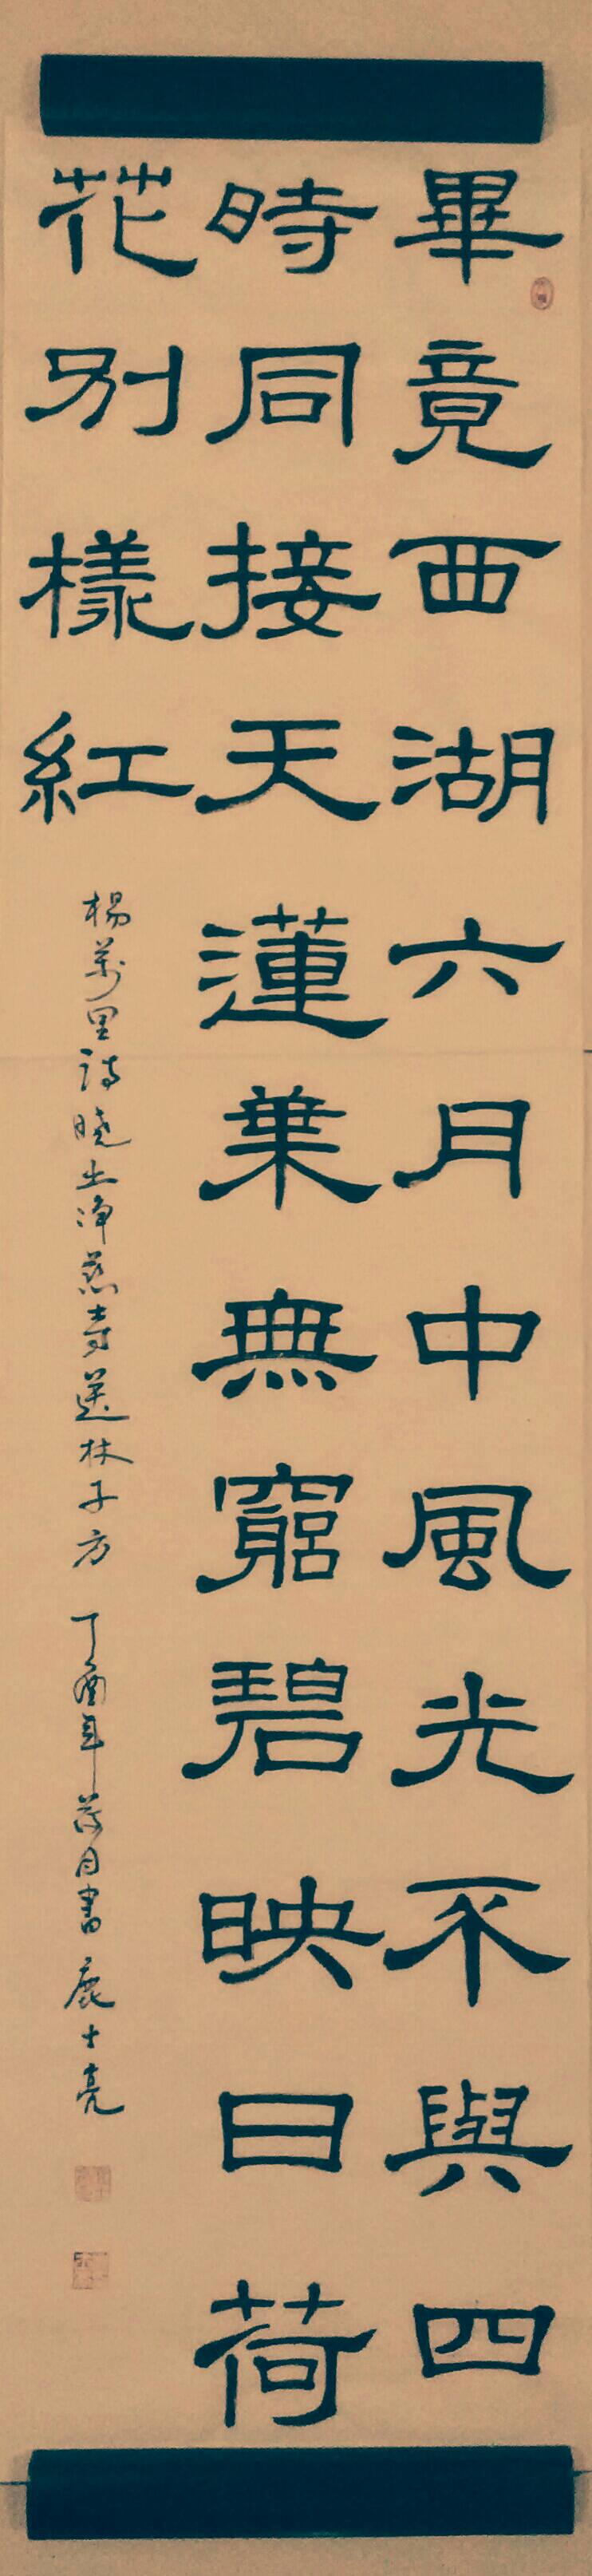 畢竟西湖六月中風光不與四
時同接天蓮葉無窮碧映日荷
花別樣紅
楊萬里詩曉出淨慈寺送林子方 丁酉年 月書 鹿士亮